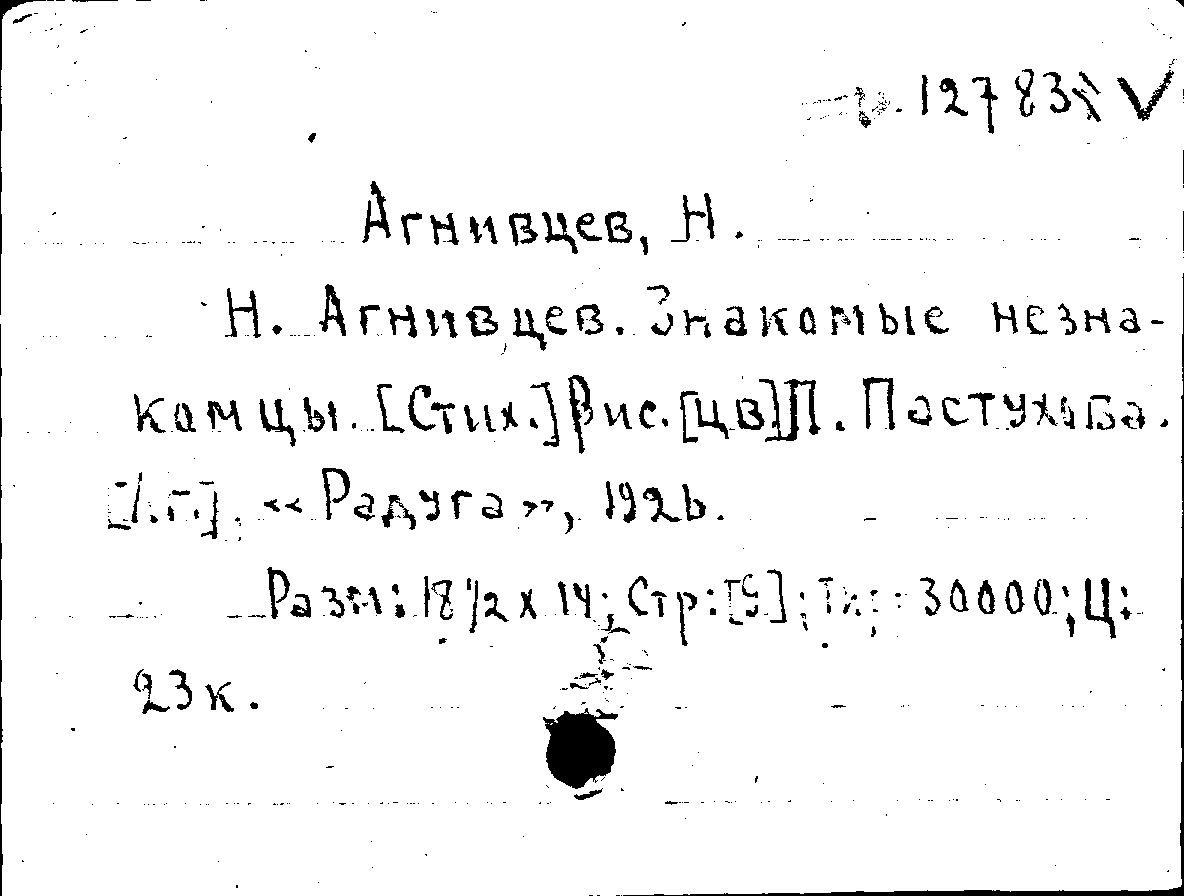 12783 V
Агнивцев, Н.
Н. Агнивцев. Знакомые незна-
комцы. [Стих.] Рис. [цв] П. Пастухова.
[Л.г.]. «Радуга», 1926.
Разм: 18 1/2 х 14; Стр: [9]; Тир: 30000; Ц:
23 к.